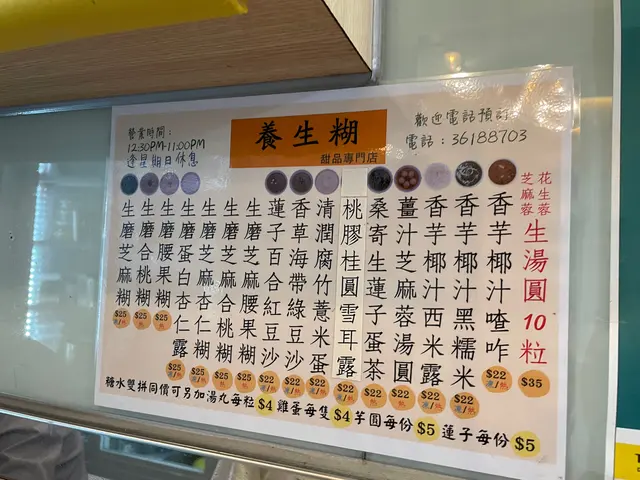 營業時間：
12:30PM-11:00PM
逢星期日休息
養生糊
甜品專門店
歡迎電話預訂
電話：36188703
花生蓉
芝麻蓉
生湯圓10粒
$35
香芋椰汁喳咋
$22
香芋椰汁黑糯米
$22
香芋椰汁西米露
$22
薑汁芝麻蓉湯圓
$22
桑寄生蓮子蛋茶
$22
桃膠桂圓雪耳露
$22
清潤腐竹薏米蛋
$22
香草海帶綠豆沙
$22
蓮子百合紅豆沙
$22
生磨芝麻腰果糊
$25
生磨芝麻合桃糊
$25
生磨芝麻杏仁糊
$25
生磨蛋白杏仁露
$25
生磨腰果糊
$25
生磨合桃糊
$25
生磨芝麻糊
$25
糖水雙拼同價可另加湯丸每粒$4 雞蛋每隻$4 芋圓每份$5 蓮子每份$5